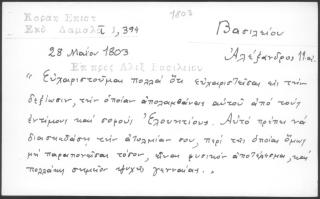 Κοραη Επιστ
Εκδ Δαμαλᾶ Ι 1,394
1803
Βασιλείου
28 Μαΐου 1803
Ἀλέξανδρος
Επ προς Αλεξ Βασιλειου
" Εὐχαριστοῦμαι πολλὰ ὅτι εὐχαριστεῖσαι εἰς τὴν
δεξίωσιν, τὴν ὁποίαν ἀπολαμβάνεις αὐτοῦ ἀπὸ τοὺς
ἐντίμους καὶ σοφοὺς Αὐτὸ πρέπει νὰ
διασκεδάσῃ τὴν ἀτολμίαν σου, περὶ τῆς ὁποίας ὅμως
μὴ παραπονεῖσαι τόσον, εἶναι φυσικὸν ἀποτέλεσμα, καὶ
πολλάκις σημεῖον ψυχῆς γενναίας.